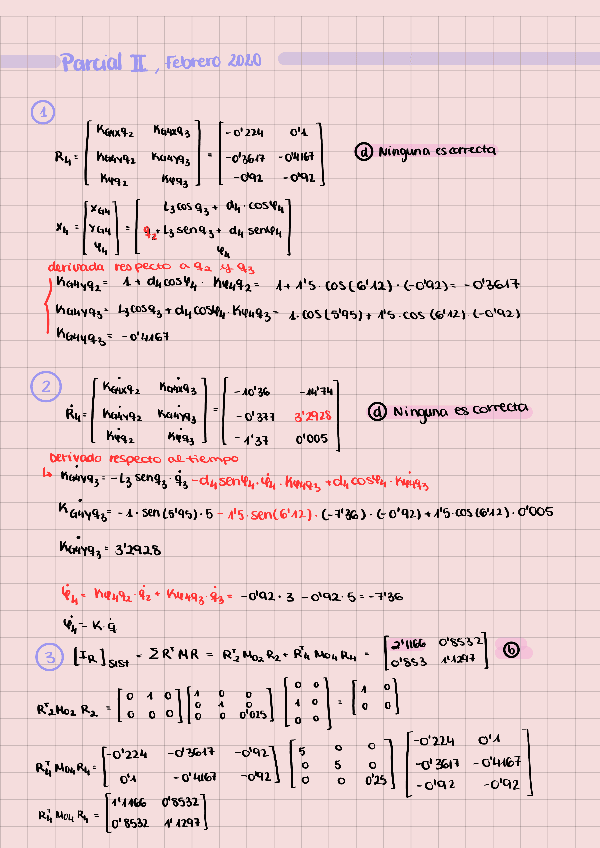 Parcial II, Febrero 2020
1
R₄ = [ K_G4xq₂ K_G4xq₃ ; K_G4yq₂ K_G4yq₃ ; K_φq₂ K_φq₃ ] = [ -0'224 0'1 ; -0'3617 -0'4167 ; -0'92 -0'92 ] d Ninguna es correcta
x₄ = [ x_G4 ; y_G4 ; φ₄ ] = [ L₃ cos q₃ + d₄ · cos φ₄ ; q₂ + L₃ sen q₃ + d₄ sen φ₄ ; φ₄ ]
derivada respecto a q₂ y q₃
K_G4yq₂ = 1 + d₄ cos φ₄ · K_φ4q₂ = 1 + 1'5 · cos (6'12) · (-0'92) = -0'3617
K_G4yq₃ = L₃ cos q₃ + d₄ cos φ₄ · K_φ4q₃ = 1 · cos (5'95) + 1'5 · cos (6'12) · (-0'92)
K_G4yq₃ = -0'4167
2
Ṙ₄ = [ K̇_G4xq₂ K̇_G4xq₃ ; K̇_G4yq₂ K̇_G4yq₃ ; K̇_φq₂ K̇_φq₃ ] = [ -10'36 -14'74 ; -0'377 3'2928 ; -1'37 0'005 ] d Ninguna es correcta
Derivado respecto al tiempo
↳ K̇_G4yq₃ = -L₃ sen q₃ · q̇₃ - d₄ sen φ₄ · φ̇₄ · K_φ4q₃ + d₄ cos φ₄ · K̇_φ4q₃
K̇_G4yq₃ = -1 · sen (5'95) · 5 - 1'5 · sen (6'12) · (-7'36) · (-0'92) + 1'5 · cos (6'12) · 0'005
K̇_G4yq₃ = 3'2928
φ̇₄ = K_φ4q₂ · q̇₂ + K_φ4q₃ · q̇₃ = -0'92 · 3 - 0'92 · 5 = -7'36
φ̇₄ = K · q̇
3 [I_R]_SIST = ΣRᵀMR = R₂ᵀ M_O2 R₂ + R₄ᵀ M_O4 R₄ = [ 2'1166 0'8532 ; 0'853 1'1297 ] b
R₂ᵀ M_O2 R₂ = [ 0 1 0 ; 0 0 0 ] [ 1 0 0 ; 0 1 0 ; 0 0 0'025 ] [ 0 0 ; 1 0 ; 0 0 ] = [ 1 0 ; 0 0 ]
R₄ᵀ M_O4 R₄ = [ -0'224 -0'3617 -0'92 ; 0'1 -0'4167 -0'92 ] [ 5 0 0 ; 0 5 0 ; 0 0 0'25 ] [ -0'224 0'1 ; -0'3617 -0'4167 ; -0'92 -0'92 ]
R₄ᵀ M_O4 R₄ = [ 1'1166 0'8532 ; 0'8532 1'1297 ]